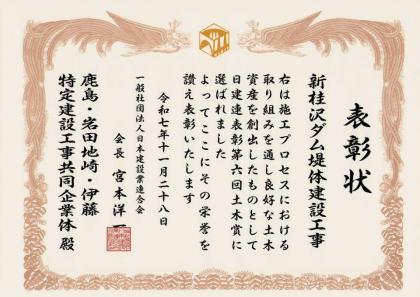 表彰状
新桂沢ダム堤体建設工事
右は施工プロセスにおける
取り組みを通し良好な土木
資産を創出したものとして
日建連表彰第六回土木賞に
選ばれました
よってここにその栄誉を
讃え表彰いたします
令和七年十一月二十八日
一般社団法人日本建設業連合会
会長 宮本洋一
鹿島・岩田地崎・伊藤
特定建設工事共同企業体 殿